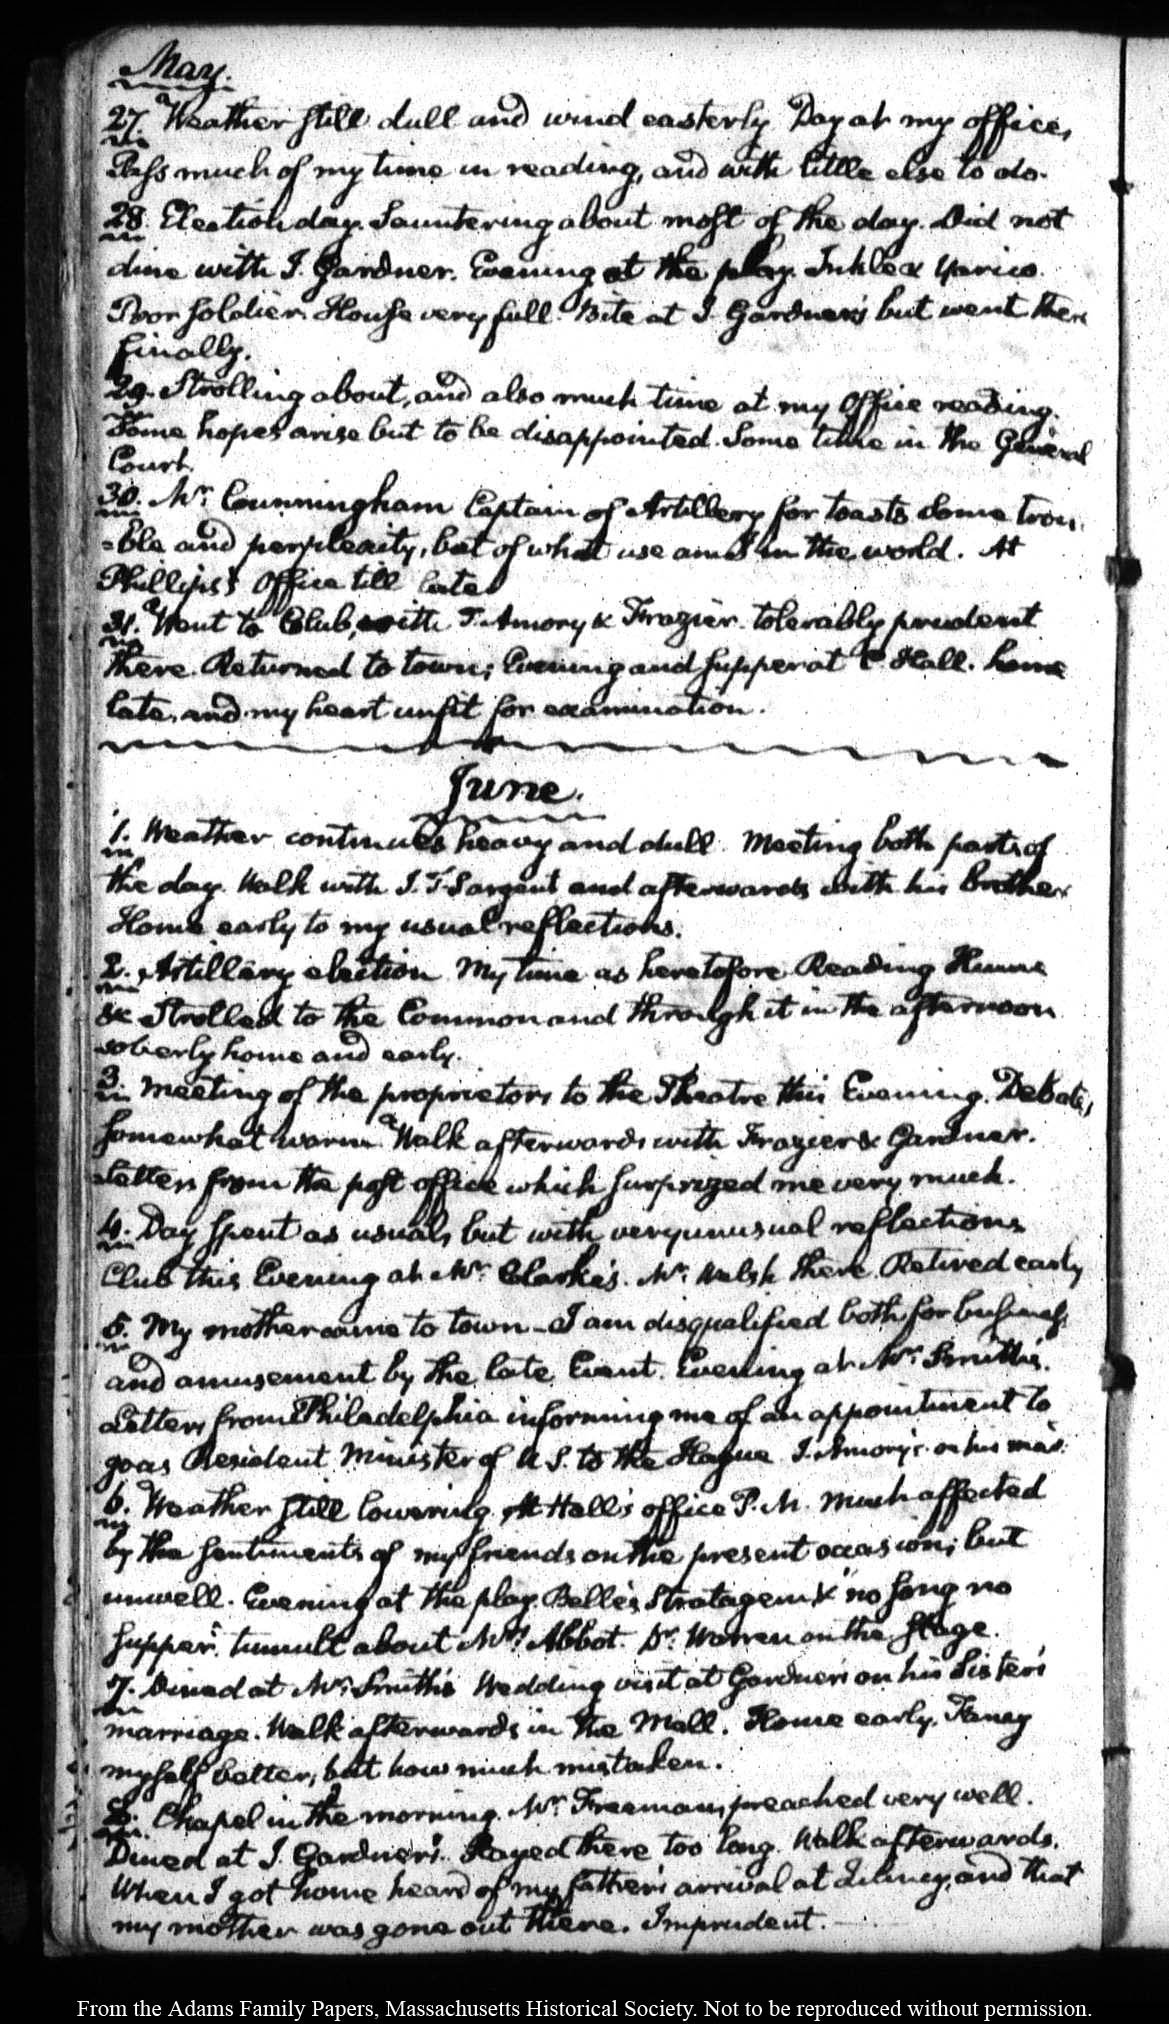 May.
27. Weather still dull and wind easterly Day at my office,
Pass much of my time in reading, and with little else to do.
28. Election day. Sauntering about most of the day. Did not
dine with J. Gardner. Evening at the play. Inkle & Yarico.
Poor Soldier. House very full. Bite at J. Gardner's but went there
finally.
29. Strolling about, and also much time at my Office reading.
Some hopes arise but to be disappointed. Some time in the General
Court.
30. Mr. Cunningham Captain of Artillery for toasts Some trou-
=ble and perplexity, but of what use am I in the world. At
Phillips's Office till late
31. Went to Club, with J. Amory & Frazier. tolerably prudent
there. Returned to town; Evening and supper at C Hall. home
late, and my heart unfit for examination.
June.
1. Weather continues heavy and dull. Meeting both parts of
the day. Walk with J. T. Sargent and afterwards with his brother
Home early to my usual reflections.
2. Artillery election. My time as heretofore. Reading Hume
&c Strolled to the Common and through it in the afternoon
soberly home and early.
3. Meeting of the proprietors to the Theatre this Evening. Debates,
somewhat warm. Walk afterwards with Frazier & Gardner.
Letters from the post office which surprized me very much.
4. Day spent as usual, but with very unusual reflections
Club this Evening at Mr. Clarke's. Mr. Welsh there. Retired early
5. My mother came to town—I am disqualified both for business
and amusement by the late Event. Evening at Mr. Smith's.
Letters from Philadelphia informing me of an appointment to
go as Resident Minister of U S. to the Hague. J. Amory's on his
6. Weather still lowering. At Hall's office P.M. Much affected
by the sentiments of my friends on the present occasion; but
unwell. Evening at the play. Belle's Stratagem & "no song no
supper". tumult about Mrs. Abbot. Dr. Warren on the stage.
7. Dined at Mr. Smith's Wedding visit at Gardner's on his Sister's
marriage. Walk afterwards in the Mall. Home early. Fancy
myself better; but how much mistaken.
8. Chapel in the morning. Mr. Freeman, preached very well.
Dined at J. Gardner's. Stayed there too long. Walk afterwards.
When I got home heard of my father's arrival at Quincy, and that
my mother was gone out there. Imprudent.
From the Adams Family Papers, Massachusetts Historical Society. Not to be reproduced without permission.